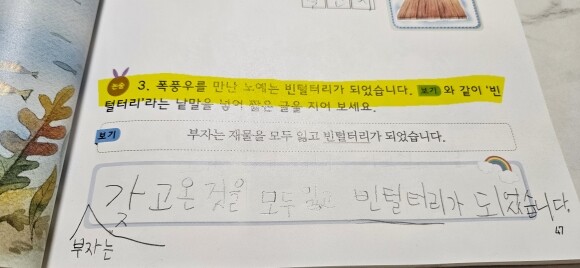 논술 3. 폭풍우를 만난 노예는 빈털터리가 되었습니다. 보기 와 같이 '빈
털터리'라는 낱말을 넣어 짧은 글을 지어 보세요.
보기
부자는 재물을 모두 잃고 빈털터리가 되었습니다.
갖고온 것을 모두 잃고 빈털터리가 되었습니다.
부자는
47